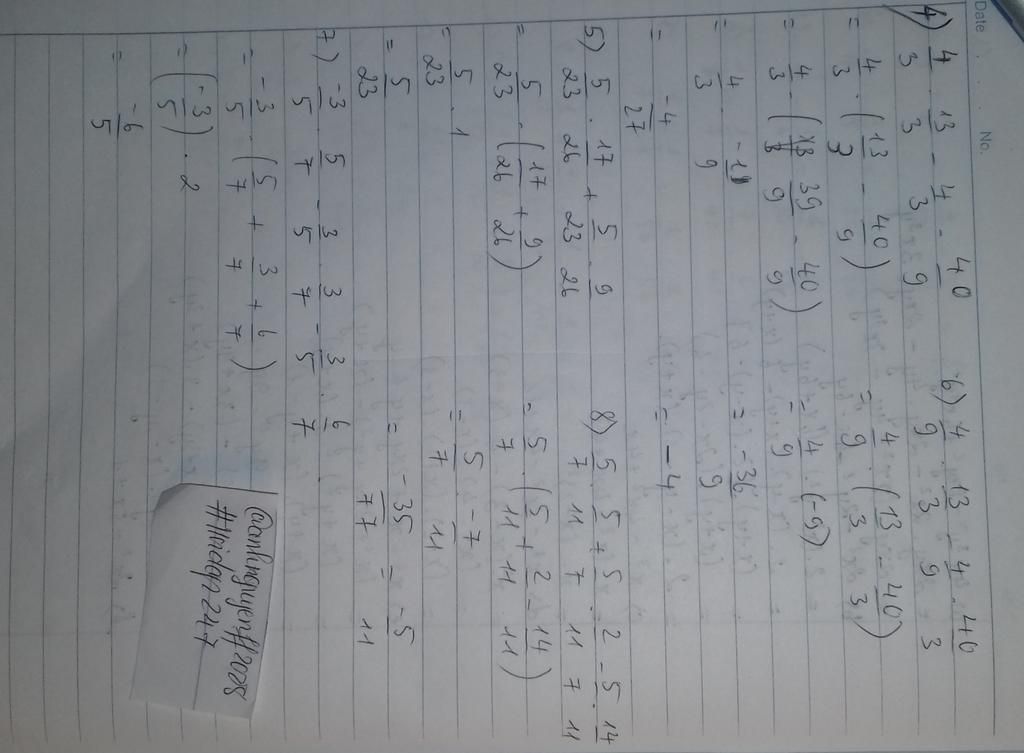 Date
No.
4) 4/3 . 13/3 - 4/3 . 40/9
= 4/3 . (13/3 - 40/9)
= 4/3 . (39/9 - 40/9)
= 4/3 . -1/9
= -4/27
5) 5/23 . 17/26 + 5/23 . 9/26
= 5/23 . (17/26 + 9/26)
= 5/23 . 1
= 5/23
7) -3/5 . 5/7 - 3/5 . 3/7 - 3/5 . 6/7
= -3/5 . (5/7 + 3/7 + 6/7)
= (-3/5) . 2
= -6/5
6) 4/9 . 13/3 - 4/9 . 40/3
= 4/9 . (13/3 - 40/3)
= 4/9 . (-9)
= -36/9
= -4
8) 5/7 . 5/11 + 5/7 . 2/11 - 5/7 . 14/11
= 5/7 . (5/11 + 2/11 - 14/11)
= 5/7 . -7/11
= -35/77 = -5/11
@vanlinguyen#2008
#Hoidap247